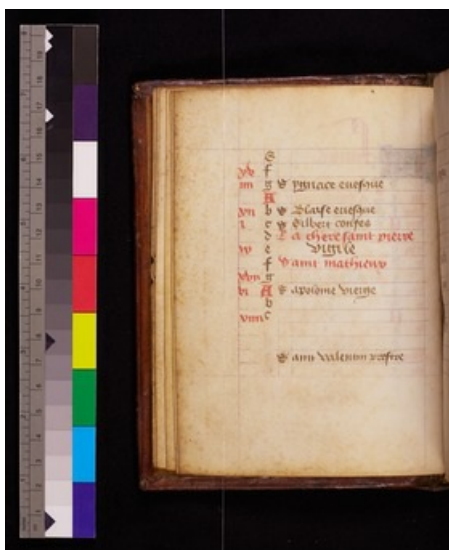 S
xvi f
iii g S ygnace euesque
A
xvii b S Blaise euesque
i c S Gilbert confes
d La chere saint pierre
ix e vigile
f Saint mathieus
xvii g
vi A S apoloine vierge
b
xiiii c
Saint valentin prestre